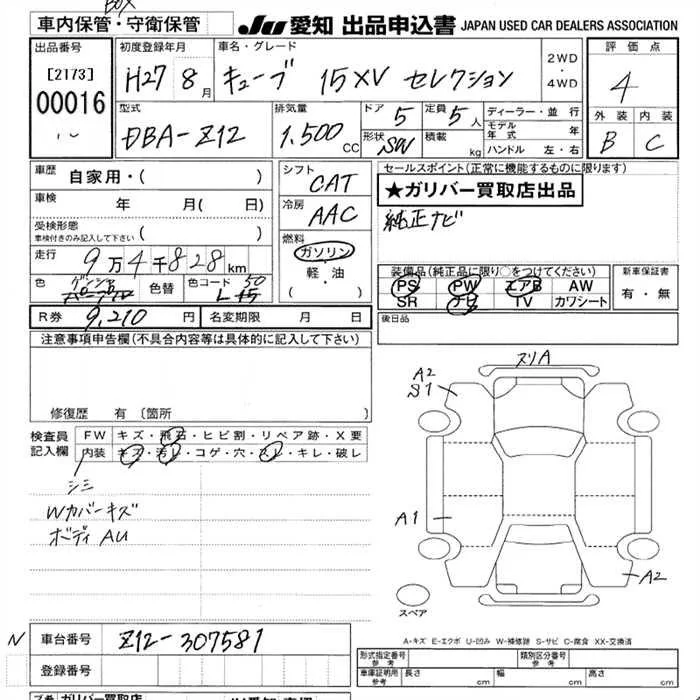 BOX
車内保管・守衛保管
JU 愛知 出品申込書 JAPAN USED CAR DEALERS ASSOCIATION
出品番号
[2173]
00016
初度登録年月
H27 8月
車名・グレード
キューブ 15XV セレクション
2WD
・
4WD
評価点
4
外装 内装
B C
型式
DBA-Z12
排気量
1.500 CC
ドア 5
定員 5人
形状 SW
積載 kg
ディーラー・並行
モデル年式 年
ハンドル 左・右
車歴 自家用・( )
車検 年 月( 日)
受検形態
車検付きのみ記入して下さい ( )
走行 9万4千828km
色
色替
色コード 50
L
シフト
CAT
冷房
AAC
燃料
ガソリン
軽・油
( )
セールスポイント(正常に機能するものに限ります)
★ガリバー買取店出品
純正ナビ
装備品(純正品に限り○をつけてください)
PS PW エアB AW
SR ナビ TV カワシート
新車保証書
有・無
R券 9,210 円 名変期限 月 日
後日品
注意事項申告欄(不具合内容等は具体的に記入して下さい)
修復歴 有〔箇所 〕
検査員記入欄
FW キズ・飛石・ヒビ割・リペア跡・X要
内装 キズ・汚レ・コゲ・穴・スレ・キレ・破レ
シミ
Wカバーキズ
ボディ AU
スリA
A2
S1
A1
A2
スペア
A-キズ E-エクボ U-凹み W-補修跡 S-サビ C-腐食 XX-交換済
N 車台番号 Z12-307581
登録番号
形式指定番号 参考
類別区分番号 参考
車庫証明用 参考 長さ cm 幅 cm 高さ cm
ガリバー買取店